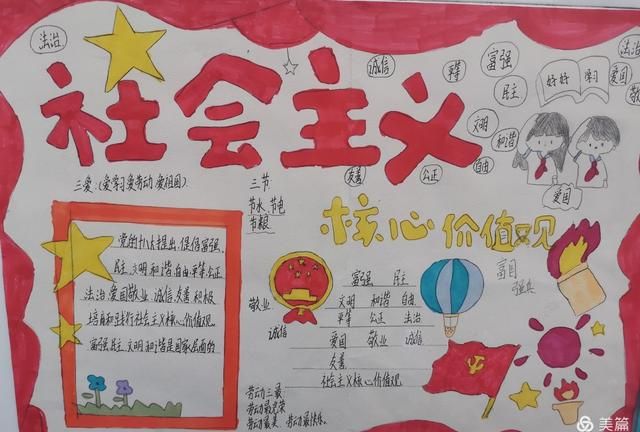 法治
社会主义
诚信
平等
富强
民主
文明
和谐
自由
公正
友善
好好 学习
法治
爱国
敬业
爱国
三爱:(爱学习 爱劳动 爱祖国)
三节:
节水 节电
节粮
核心价值观
党的十八大提出,倡导富强、
民主、文明、和谐、自由、平等、公正
法治、爱国敬业、诚信、友善、积极
培育和践行社会主义核心价值观。
富强、民主、文明、和谐是国家层面的
敬业
诚信
富强 民主
文明 和谐 自由
平等 公正 法治
爱国 敬业 诚信
友善
社会主义核心价值观
劳动三最:
劳动最光荣
劳动最美、劳动最快乐。
强兵
美篇